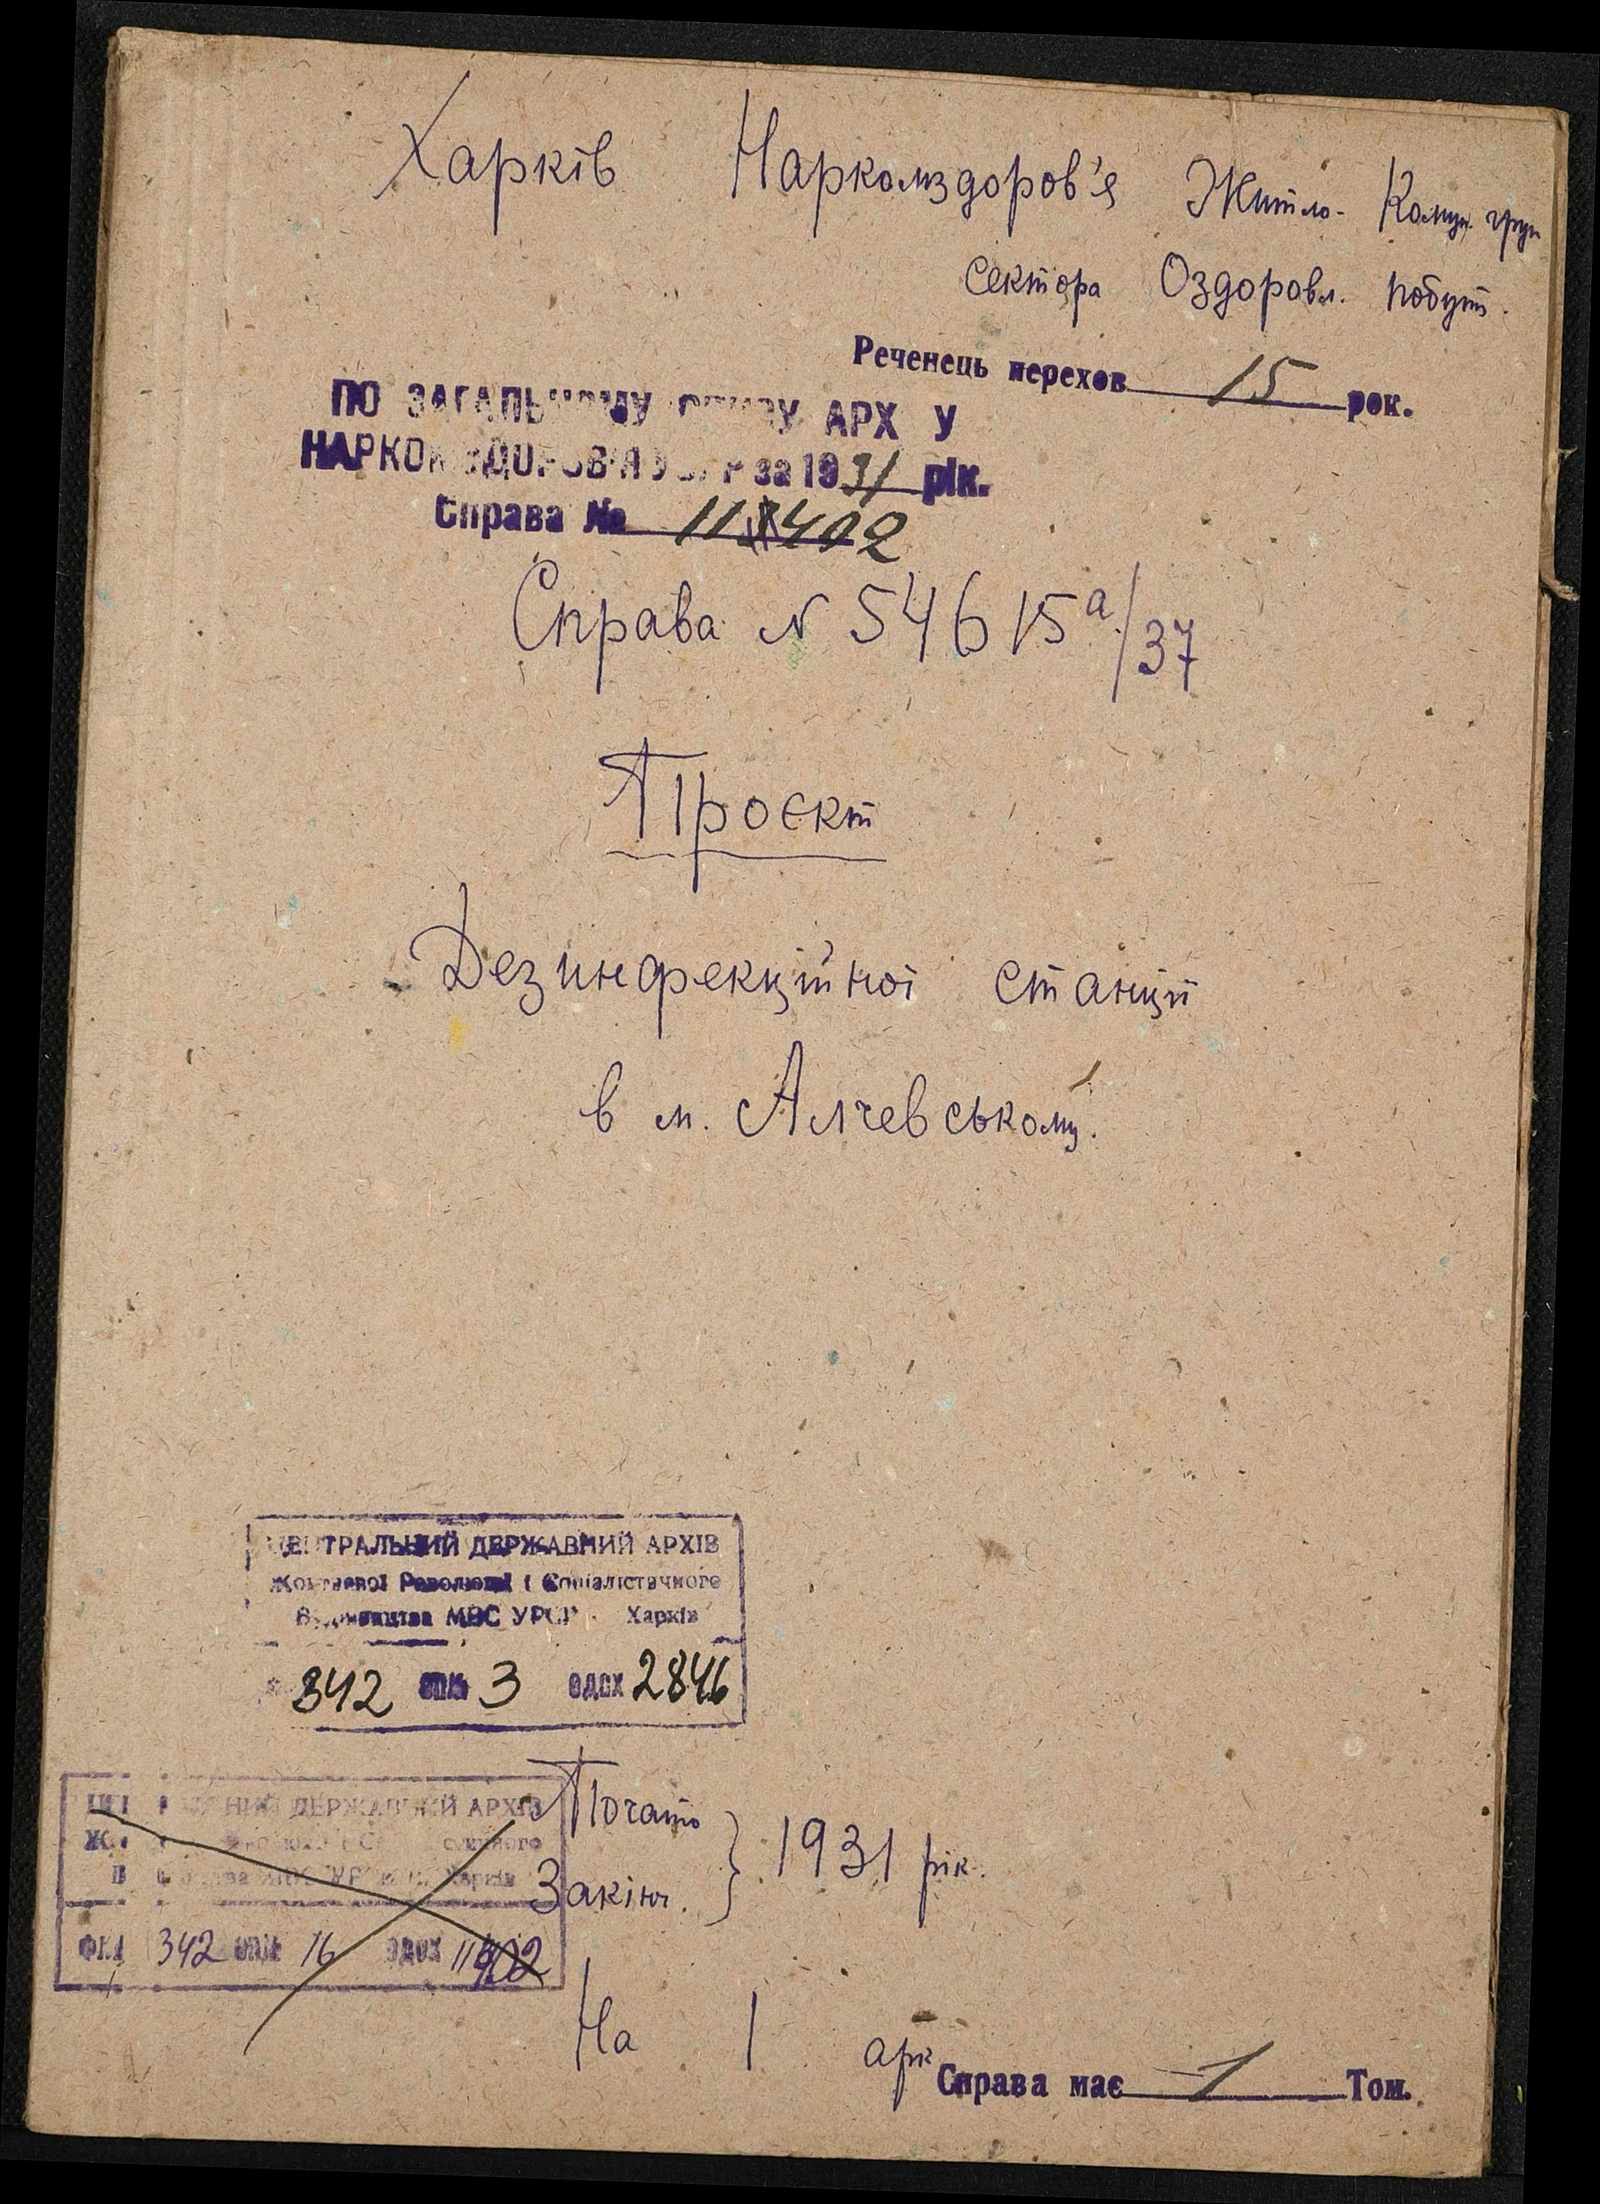 Харків Наркомздоров'я Житло- Комун. груп
сектора Оздоровл. побут.
Реченець перехов 15 рок.
ПО ЗАГАЛЬНОМУ ОПИСУ АРХ У
НАРКОМЗДОРОВ'Я УСРР за 1931 рік.
Справа №
Справа N 54615а/37
Проєкт
Дезинфекційної станції
в м. Алчевському.
ЦЕНТРАЛЬНИЙ ДЕРЖАВНИЙ АРХІВ
Жовтневої Революції і Соціалістичного
Будівництва МВС УРСР Харків
342 опис 3 одсх 2846
ДЕРЖАВНИЙ АРХІВ
Харків
342 опис 16 одсх
Почато
Закінч. } 1931 рік.
На 1 арк
Справа має 1 Том.